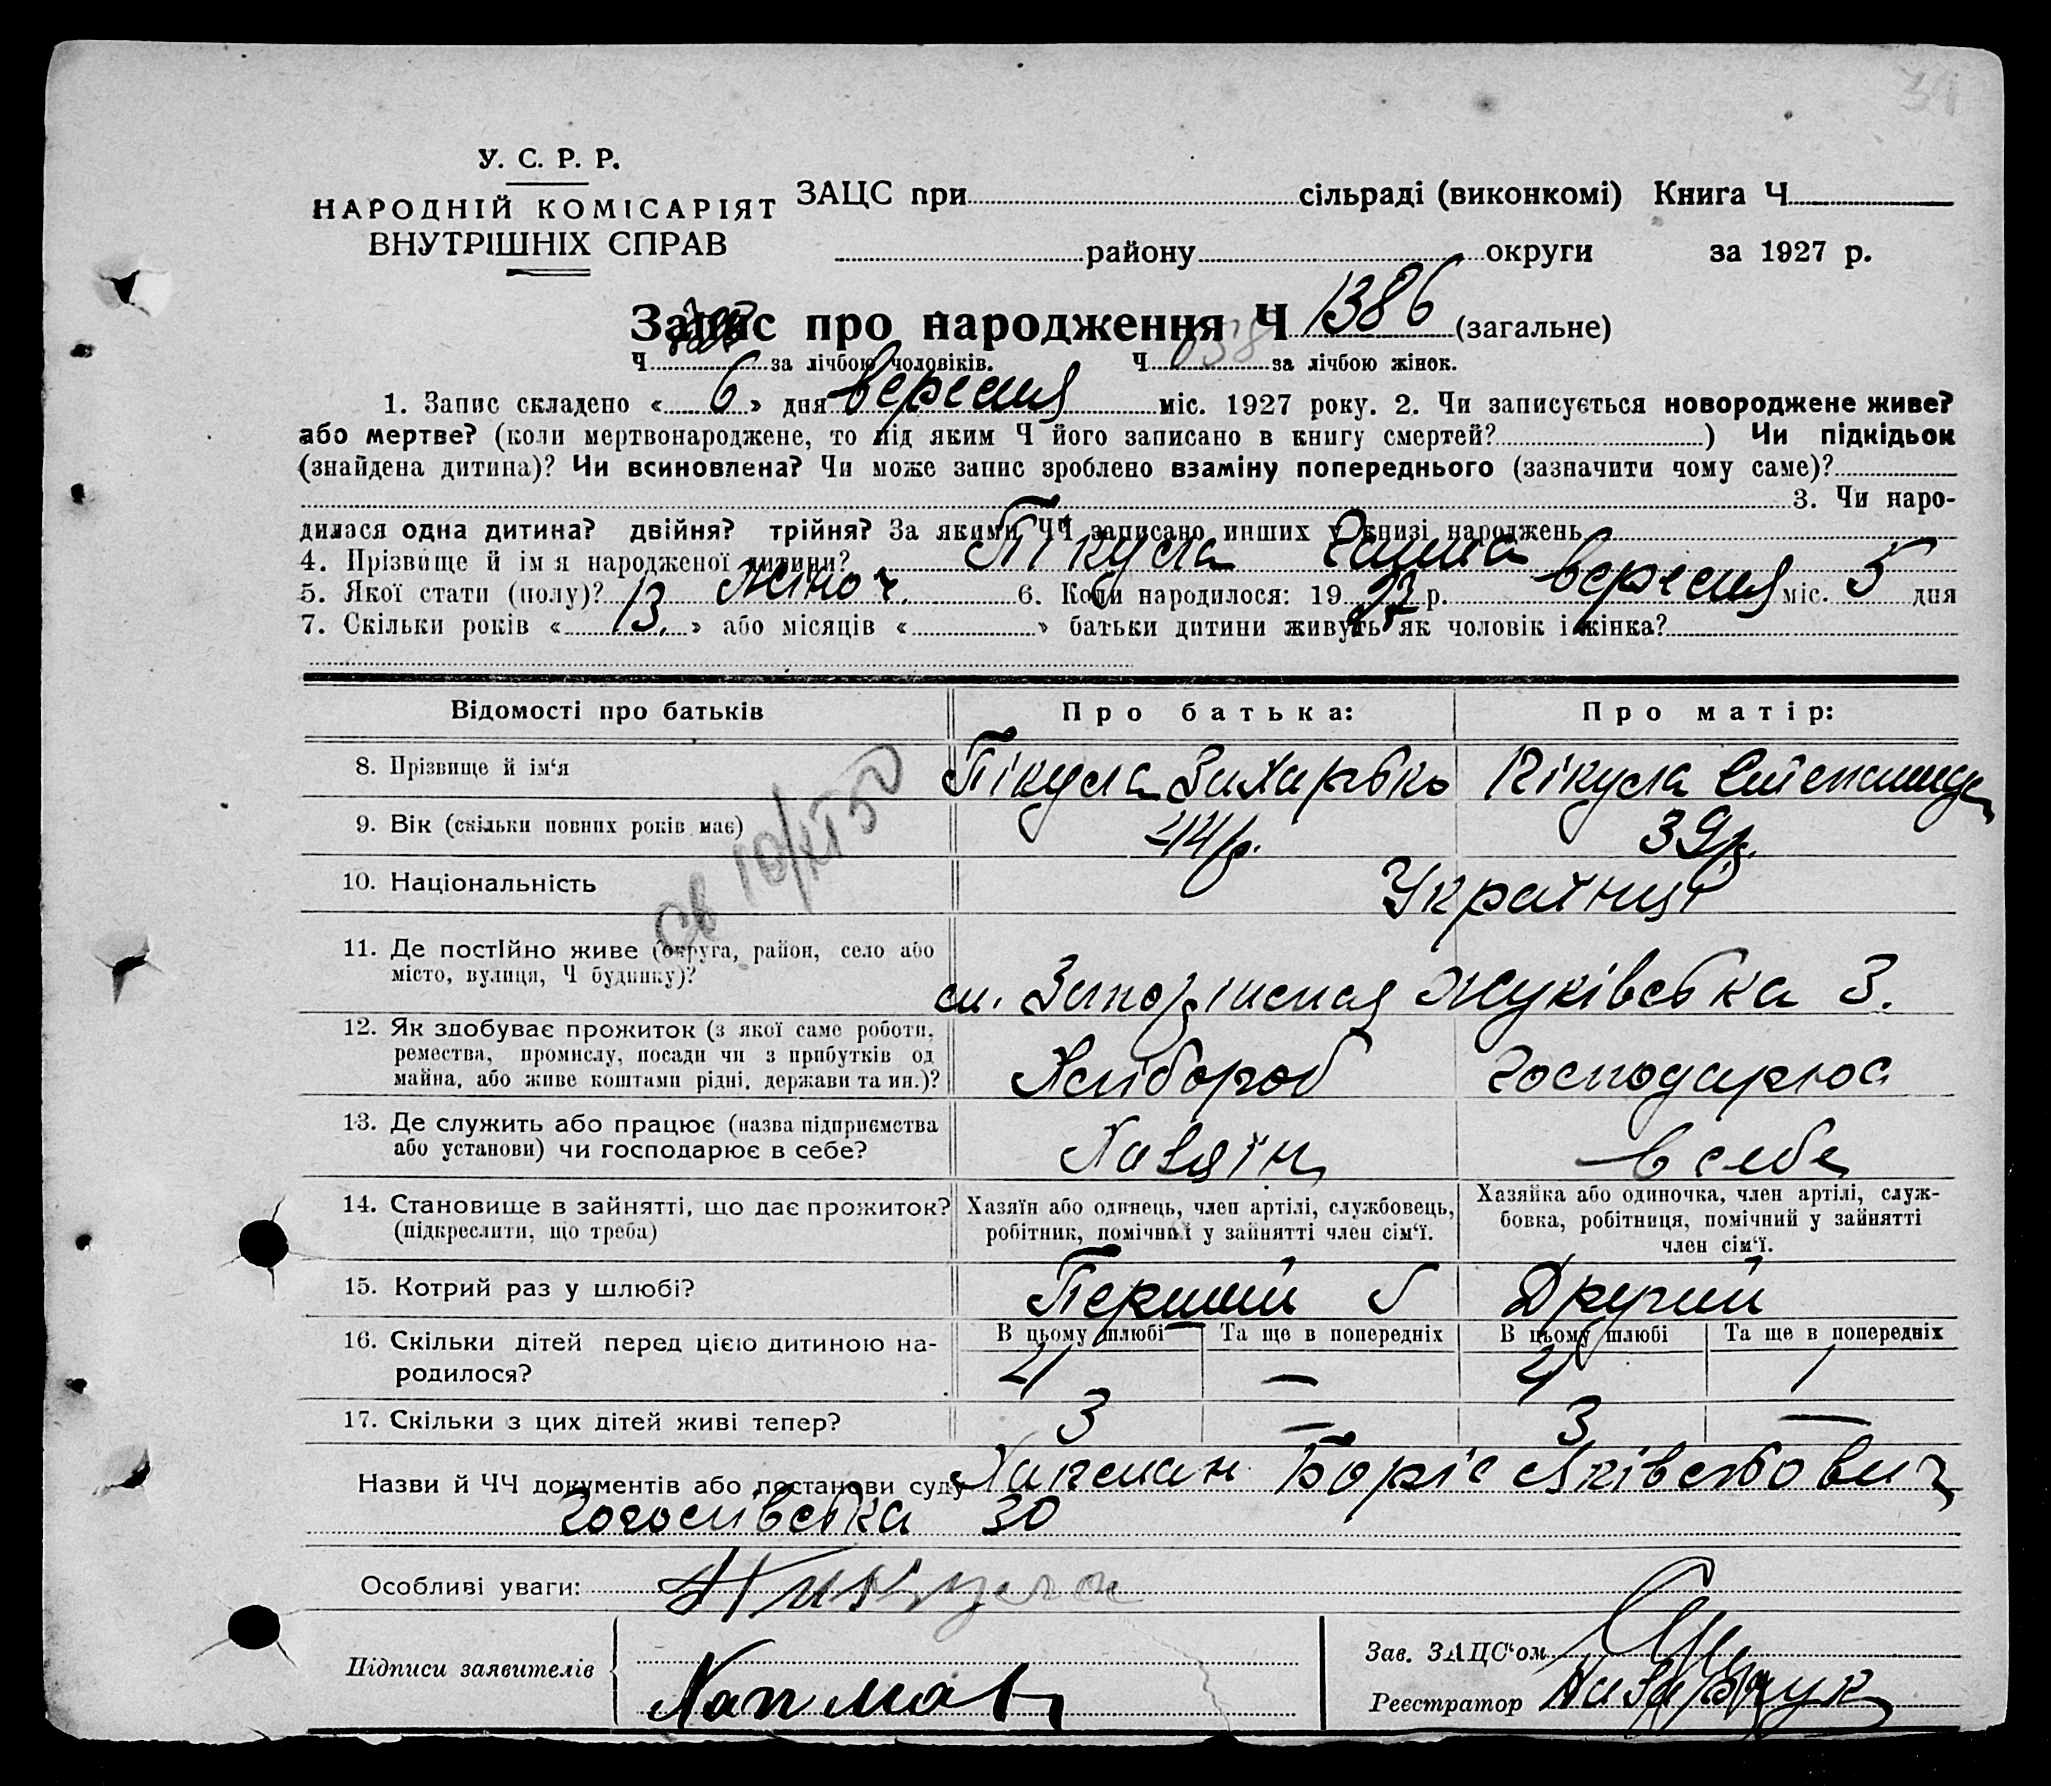 34
У. С. Р. Р.
НАРОДНІЙ КОМІСАРІЯТ
ВНУТРІШНІХ СПРАВ
ЗАЦС при сільраді (виконкомі) Книга Ч
району округи за 1927 р.
Запис про народження Ч 1386 (загальне)
Ч за лічбою чоловіків. Ч 638 за лічбою жінок.
1. Запис складено « 6 » дня вересня міс. 1927 року. 2. Чи записується новороджене живе?
або мертве? (коли мертвонароджене, то під яким Ч його записано в книгу смертей? ) Чи підкідьок
(знайдена дитина)? Чи всиновлена? Чи може запис зроблено взаміну попереднього (зазначити чому саме)?
3. Чи наро-
дилася одна дитина? двійня? трійня? За якими ЧЧ записано инших у книзі народжень
4. Прізвище й ім я народженої дитини? Пікула Ганна
5. Якої стати (полу)? жіноч. 6. Коли народилося: 19 27 р. вересня міс. 5 дня
7. Скільки років « 13. » або місяців « » батьки дитини живуть як чоловік і жінка?
Відомості про батьків
Про батька:
Про матір:
8. Прізвище й ім‘я
Пікула Захарько
Пікула
9. Вік (скільки повних років має)
44 р.
39 р.
10. Національність
Українці
11. Де постійно живе (округа, район, село або
місто, вулиця, Ч будинку)?
Жуківська 3.
12. Як здобуває прожиток (з якої саме роботи,
ремества, промислу, посади чи з прибутків од
майна, або живе коштами рідні, держави та ин.)?
Хлібороб
господарює
13. Де служить або працює (назва підприємства
або установи) чи господарює в себе?
Хазяїн
в себе
14. Становище в зайнятті, що дає прожиток?
(підкреслити, що треба)
Хазяїн або одинець, член артілі, службовець,
робітник, помічний у зайнятті член сім‘ї.
Хазяйка або одиночка, член артілі, служ-
бовка, робітниця, помічний у зайнятті
член сім‘ї.
15. Котрий раз у шлюбі?
Перший
Другий
16. Скільки дітей перед цією дитиною на-
родилося?
В цьому шлюбі Та ще в попередніх В цьому шлюбі Та ще в попередніх
4 — 4 1
17. Скільки з цих дітей живі тепер?
3 — 3 —
Назви й ЧЧ документів або постанови суду Хапман Боріс Яківльович
Гоголівська 30
Особливі уваги:
Підписи заявителів
Хапман
Зав. ЗАЦС‘ом
Реєстратор